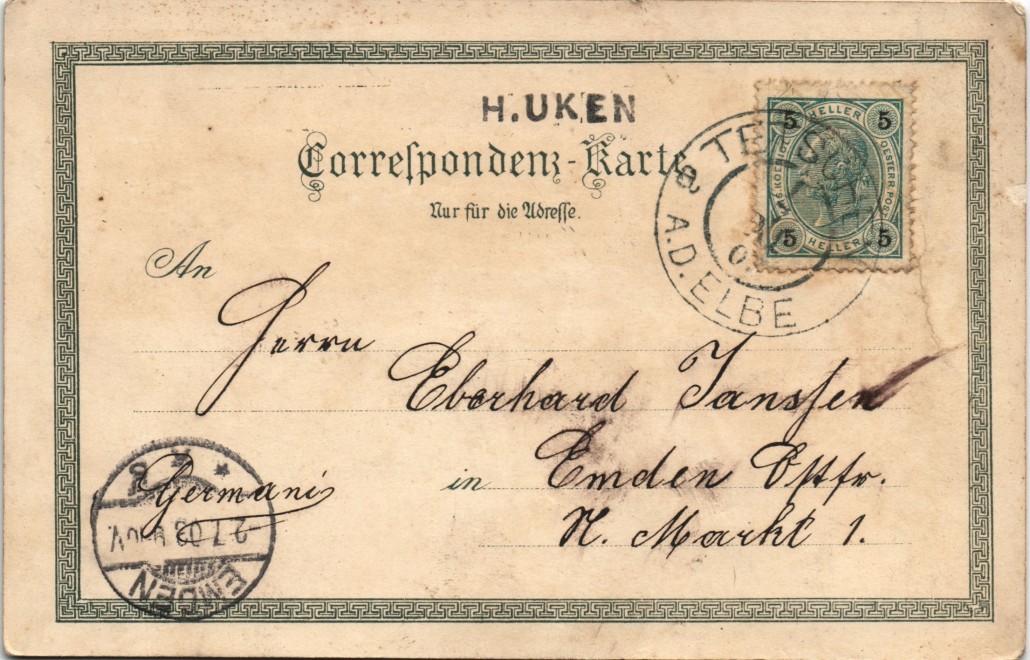 H.UKEN
Correſpondenz-Karte
Nur für die Adreſſe.
5 HELLER 5
OESTERR. POST
5 HELLER 5
TETSCHEN
A.D. ELBE
An
Herrn
Eberhard Janssen
in Emden Ostfr.
N. Markt 1.
Germani
-2.7.03
EMDEN